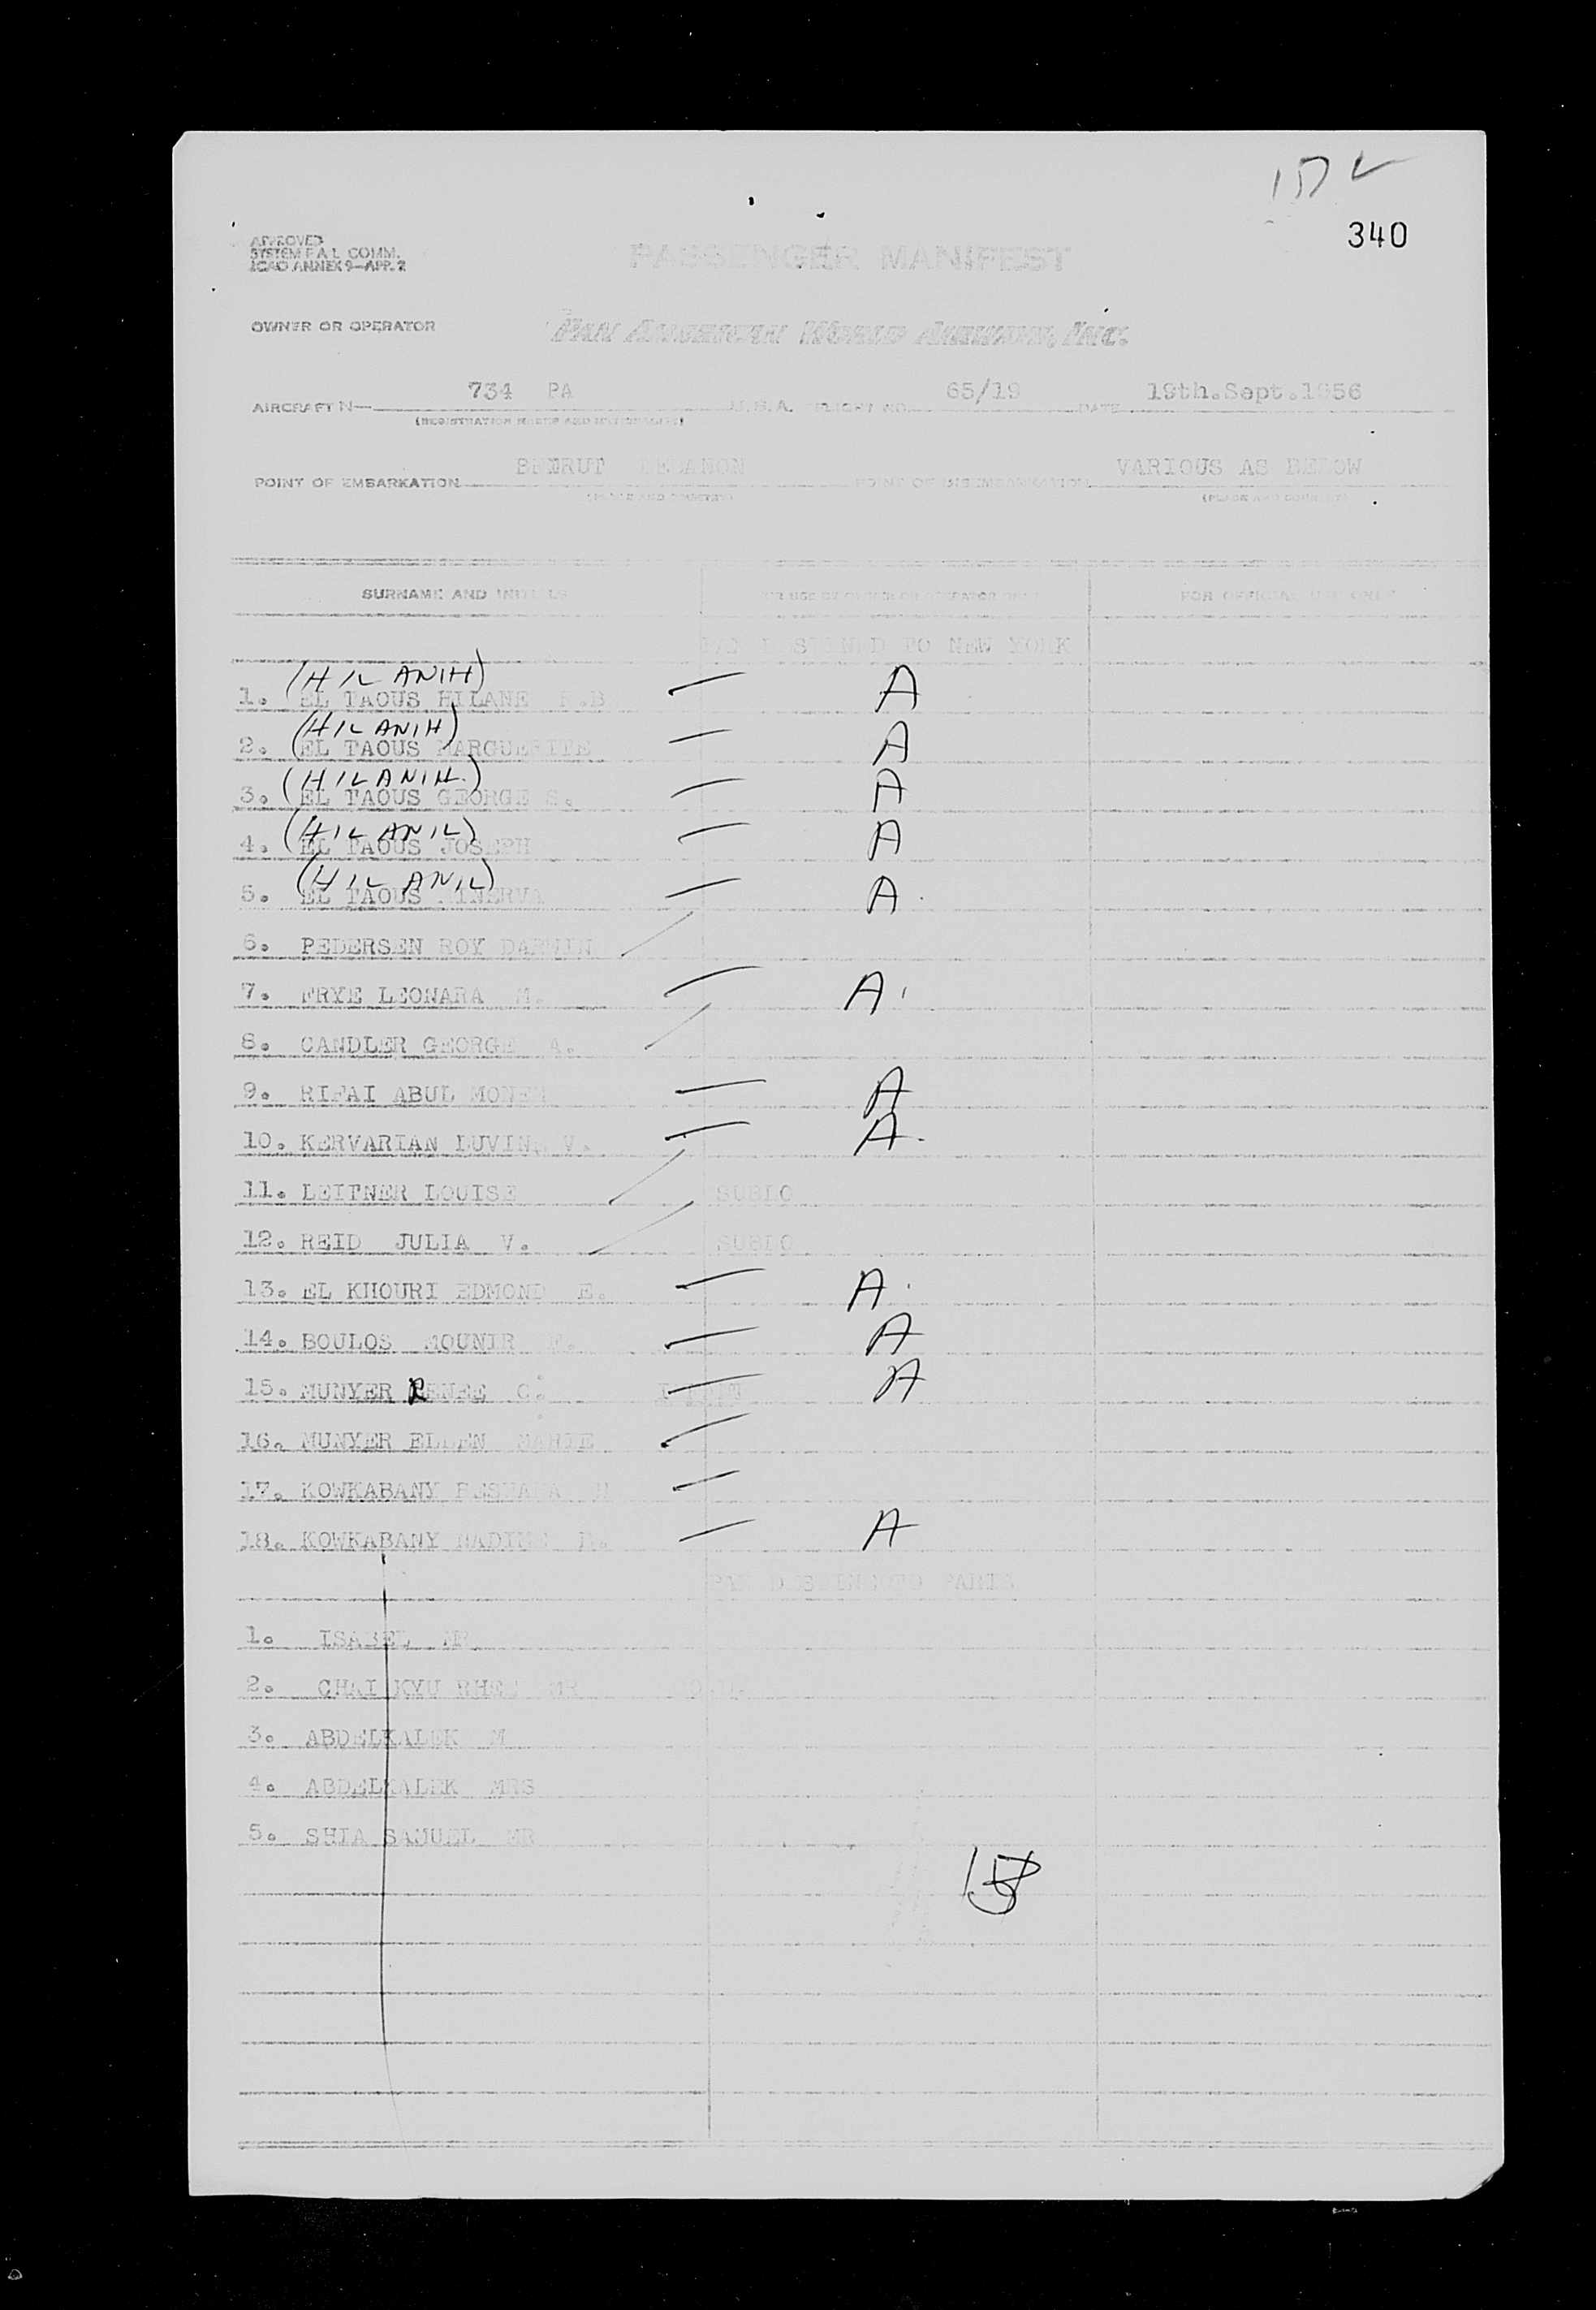 340
APPROVED
SYSTEM F A L COMM.
ICAO ANNEX 9—APP. 2
PASSENGER MANIFEST
OWNER OR OPERATOR PAN AMERICAN WORLD AIRWAYS, INC.
AIRCRAFT N— 734 PA U.S.A. FLIGHT NO. 65/19 DATE 19th.Sept.1956
(REGISTRATION MARKS AND NATIONALITY)
POINT OF EMBARKATION BEIRUT LEBANON POINT OF DISEMBARKATION VARIOUS AS BELOW
(PLACE AND COUNTRY) (PLACE AND COUNTRY)
SURNAME AND INITIALS FOR USE BY OWNER OR OPERATOR ONLY FOR OFFICIAL USE ONLY
TO NEW YORK
(HILANIH)
1. EL TAOUS HILANE — A
(HILANIH)
2. EL TAOUS MARGUERITE — A
(HILANIH.)
3. EL TAOUS GEORGE S. — A
(HILANIL)
4. EL TAOUS JOSEPH — A
(HILANIL)
5. EL TAOUS MINERVA — A
6. PEDERSEN ROY DARWIN
7. FRYE LEONARA M. — A
8. CANDLER GEORGE A.
9. RIFAI ABUL — A
10. KERVARIAN V. — A
11. LEITNER LOUISE SUBLO
12. REID JULIA V. SUBLO
13. EL KHOURI EDMOND E. — A
14. BOULOS MOUNIR — A
15. MUNYER RENEE C. — A
16. MUNYER ELLEN MARIE —
17. KOWKABANY —
18. KOWKABANY NADIME — A
PARIS
1. ISABEL MR
2. CHAI KYU RHEE MR
3. ABDELKALEK M
4. ABDELKALEK MRS
5. SHIA SAMUEL MR